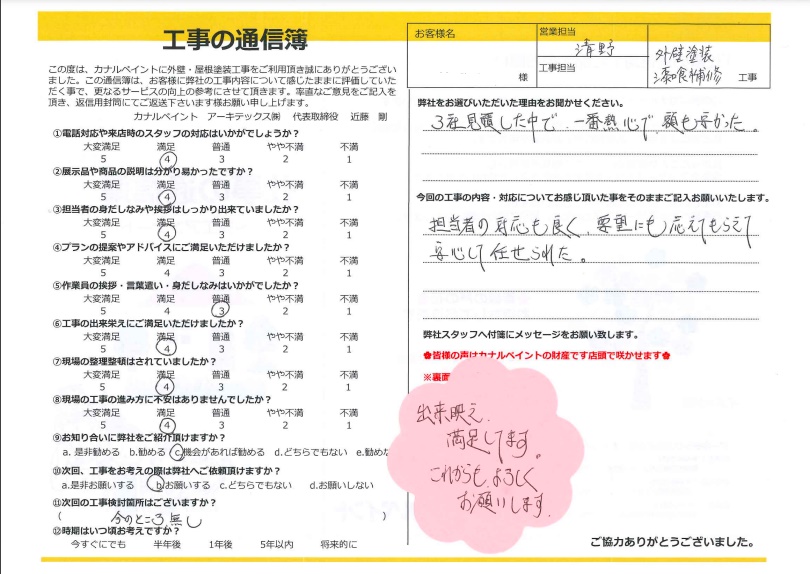 工事の通信簿
この度は、カナルペイントに外壁・屋根塗装工事をご利用頂き誠にありがとうござい
ました。この通信簿は、お客様に弊社の工事内容について感じたままに評価していた
だく事で、更なるサービスの向上の参考にさせて頂きます。率直なご意見をご記入を
頂き、返信用封筒にてご返送下さいます様お願い申し上げます。
カナルペイント アーキテックス㈱ 代表取締役 近藤 剛
①電話対応や来店時のスタッフの対応はいかがでしょうか?
大変満足 満足 普通 やや不満 不満
5 4 3 2 1
②展示品や商品の説明は分かり易かったですか?
大変満足 満足 普通 やや不満 不満
5 4 3 2 1
③担当者の身だしなみや挨拶はしっかり出来ていましたか?
大変満足 満足 普通 やや不満 不満
5 4 3 2 1
④プランの提案やアドバイスにご満足いただけましたか?
大変満足 満足 普通 やや不満 不満
5 4 3 2 1
⑤作業員の挨拶・言葉遣い・身だしなみはいかがでしたか?
大変満足 満足 普通 やや不満 不満
5 4 3 2 1
⑥工事の出来栄えにご満足いただけましたか?
大変満足 満足 普通 やや不満 不満
5 4 3 2 1
⑦現場の整理整頓はされていましたか?
大変満足 満足 普通 やや不満 不満
5 4 3 2 1
⑧現場の工事の進み方に不安はありませんでしたか?
大変満足 満足 普通 やや不満 不満
5 4 3 2 1
⑨お知り合いに弊社をご紹介頂けますか?
a. 是非勧める b.勧める c.機会があれば勧める d.どちらでもない e.勧めな
⑩次回、工事をお考えの際は弊社へご依頼頂けますか?
a.是非お願いする b.お願いする c.どちらでもない d.お願いしない
⑪次回の工事検討箇所はございますか?
( 今のところ無し )
⑫時期はいつ頃お考えですか?
今すぐにでも 半年後 1年後 5年以内 将来的に
お客様名
様
営業担当
清野
工事担当
外壁塗装
漆喰補修 工事
弊社をお選びいただいた理由をお聞かせください。
3社見積した中で、一番熱心で、額も安かった。
今回の工事の内容・対応についてお感じ頂いた事をそのままご記入お願いいたします。
担当者の対応も良く、要望にも応えてもらえて
安心して任せられた。
弊社スタッフへ付箋にメッセージをお願い致します。
✿皆様の声はカナルペイントの財産です店頭で咲かせます✿
※裏面
出来映え、
満足してます。
これからも、よろしく
お願いします。
ご協力ありがとうございました。